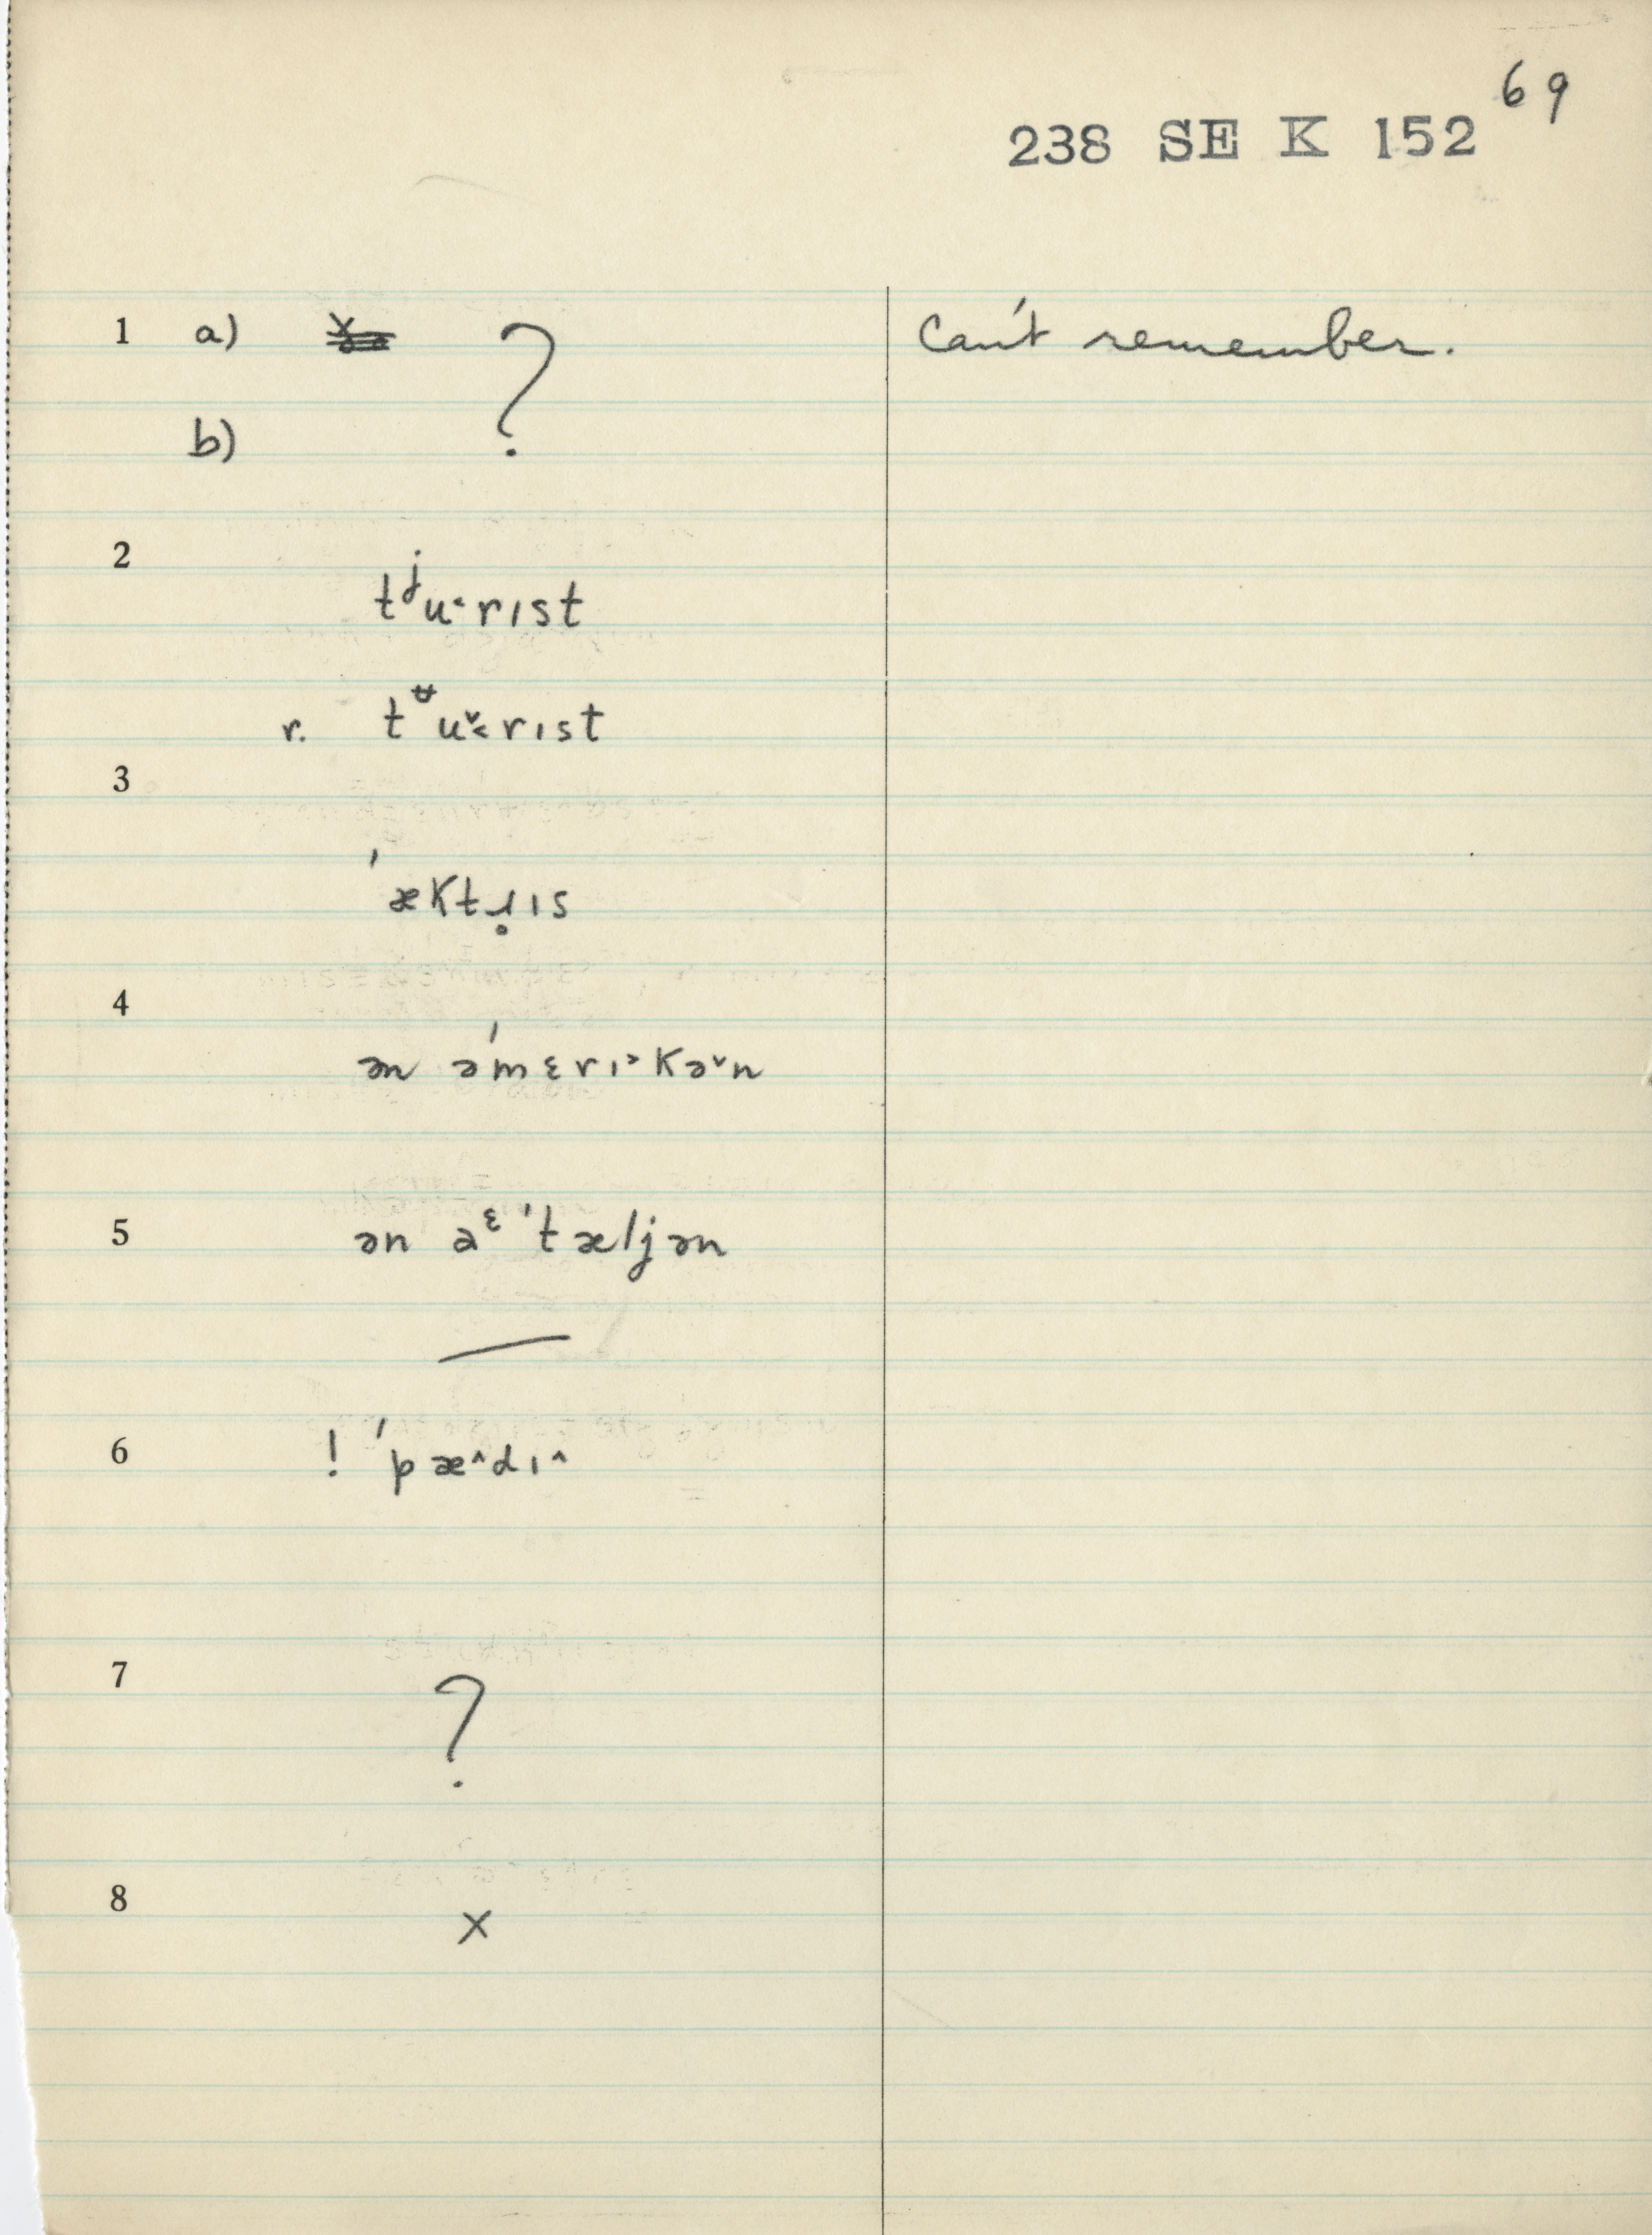 69
238 SE K 152
1 a) ? can't remember.
b)
2
tʲu˂rɪst
r. tᶶu˅˂rɪst
3
ˈæktɹ̥ɪs
4
ən əˈmɛrɪ˃kə˅n
5 ən aᵋˈtæljən
6 ! ˈpæ^dɪ^
7
?
8
x